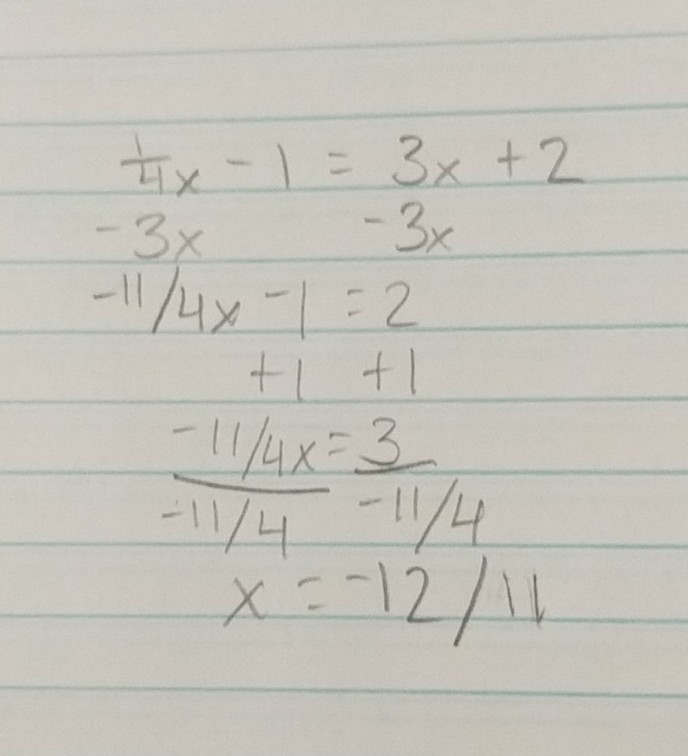 1/4x - 1 = 3x + 2
-3x -3x
-11/4x - 1 = 2
+1 +1
-11/4x = 3
-11/4 -11/4
x = -12/11